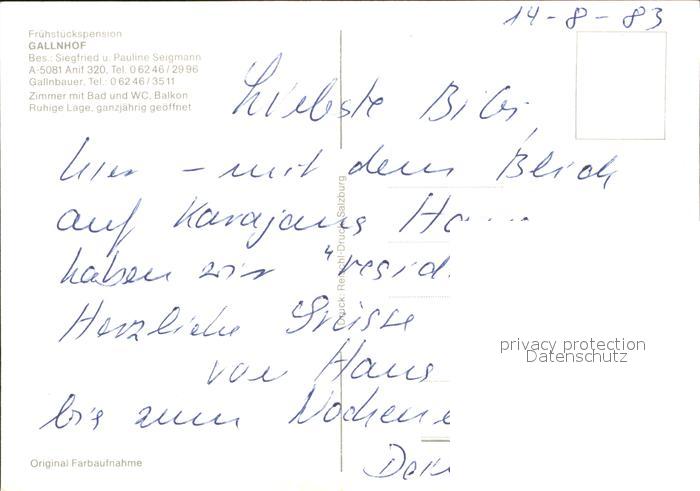 14-8-83
Frühstückspension
GALLNHOF
Bes.: Siegfried u. Pauline Seigmann
A-5081 Anif 320, Tel. 0 62 46 / 29 96
Gallnbauer, Tel.: 0 62 46 / 35 11
Zimmer mit Bad und WC, Balkon
Ruhige Lage, ganzjährig geöffnet
Liebste Bibi,
hier - mit dem Blick
auf Karajans Ha....
haben wir "resid.
Herzliche Grüsse
von Hans
bis zum Wochene
Dein
Druck: Reischl-Druck, Salzburg
privacy protection
Datenschutz
Original Farbaufnahme